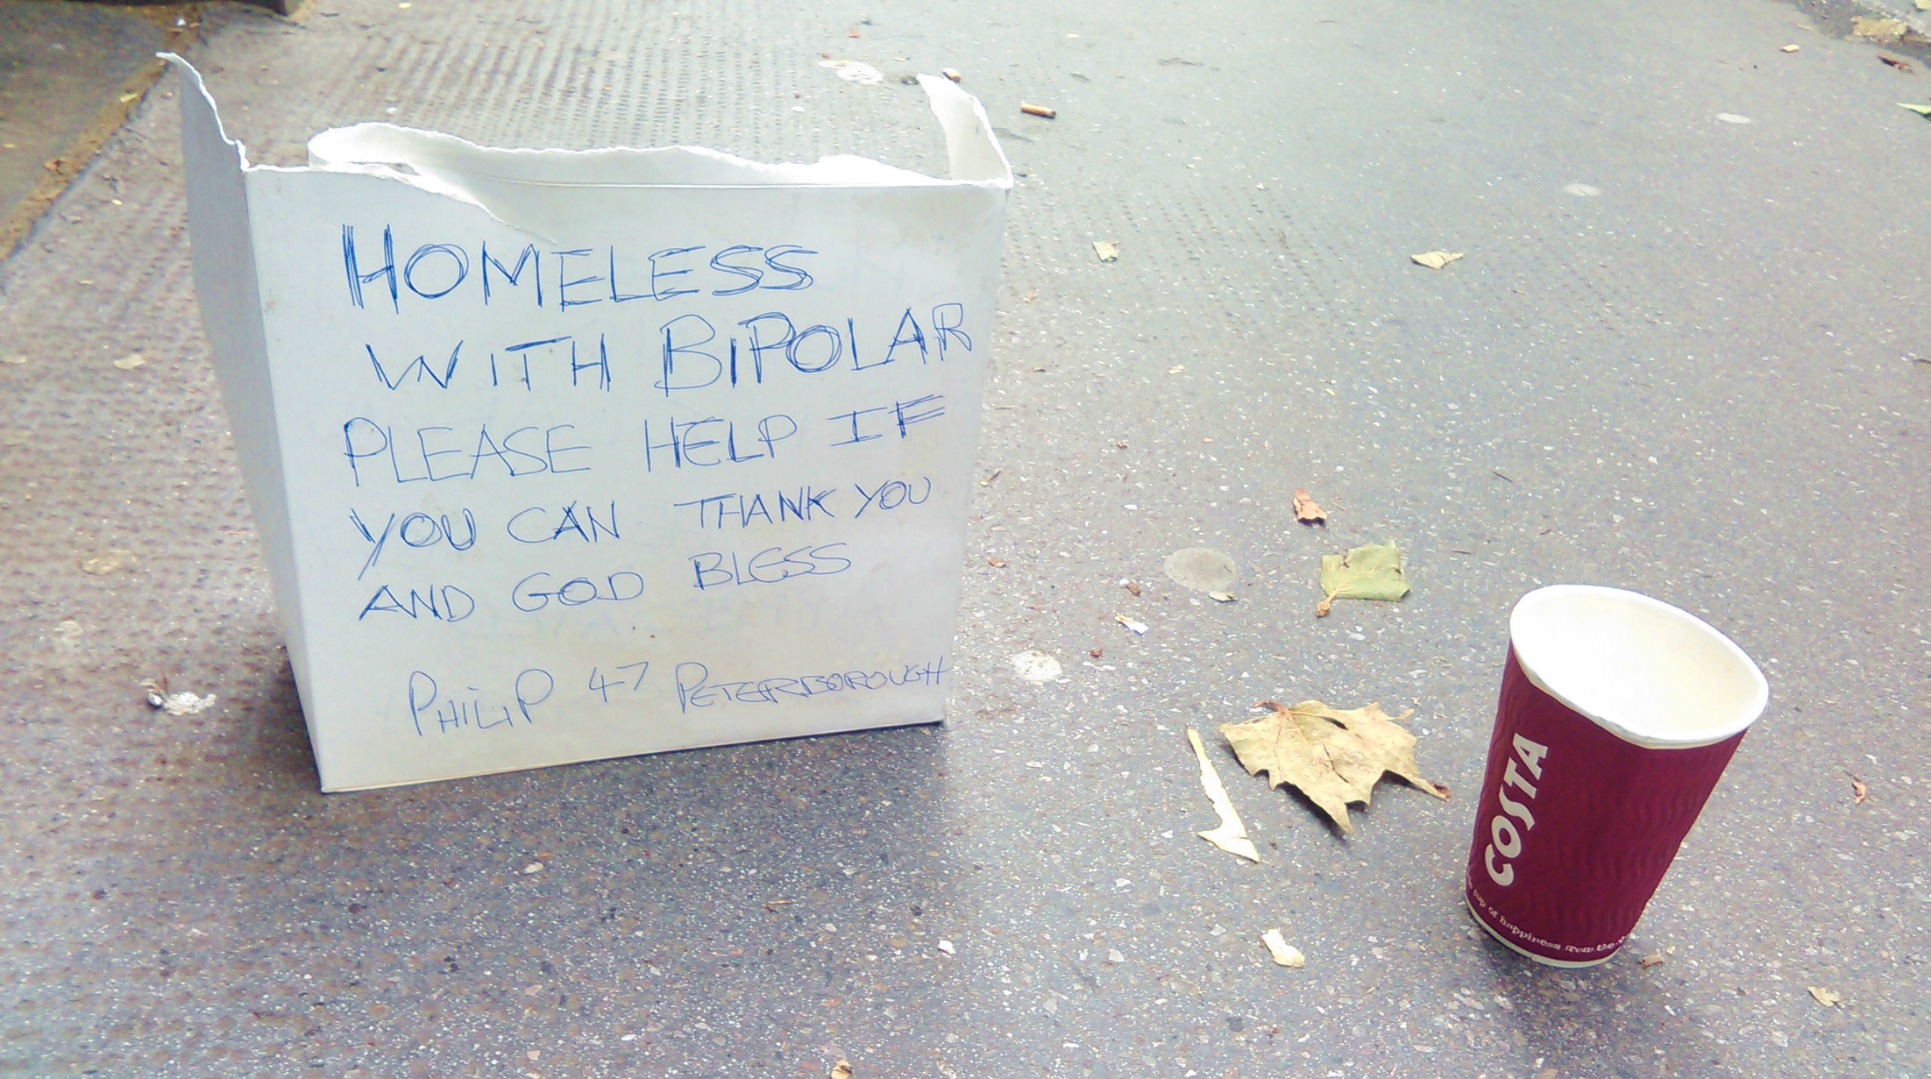 HOMELESS
WITH BIPOLAR
PLEASE HELP IF
YOU CAN THANK YOU
AND GOD BLESS
PHILIP 47 PETERBOROUGH
COSTA
cup of happiness from the